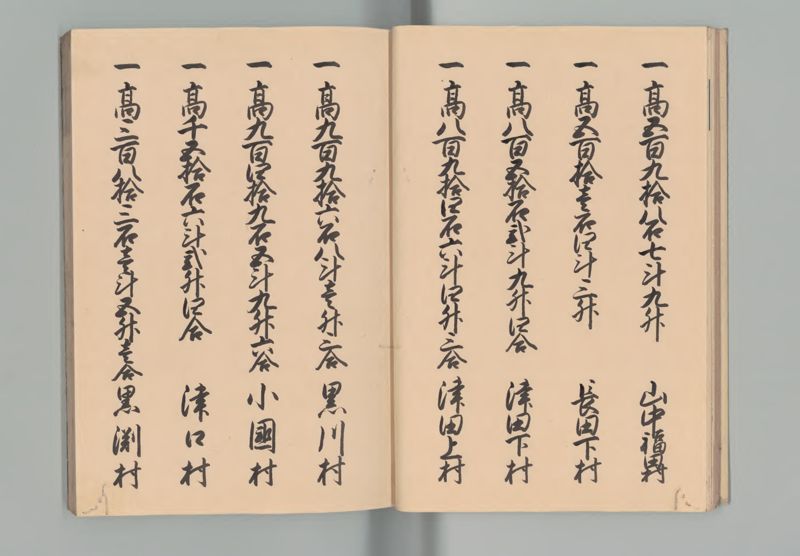 一高五百九拾八石七斗九升 山中福田村
一高五百拾壱石四斗三升 長田下村
一高八百五拾石弐斗九升四合 津田下村
一高八百九拾四石六斗四升三合 津田上村
一高九百九拾六石八斗壱升三合 黒川村
一高九百四拾九石五斗九升六合 小國村
一高千五拾石六斗弐升四合 津口村
一高三百八拾三石壱斗五升壱合 黒渕村